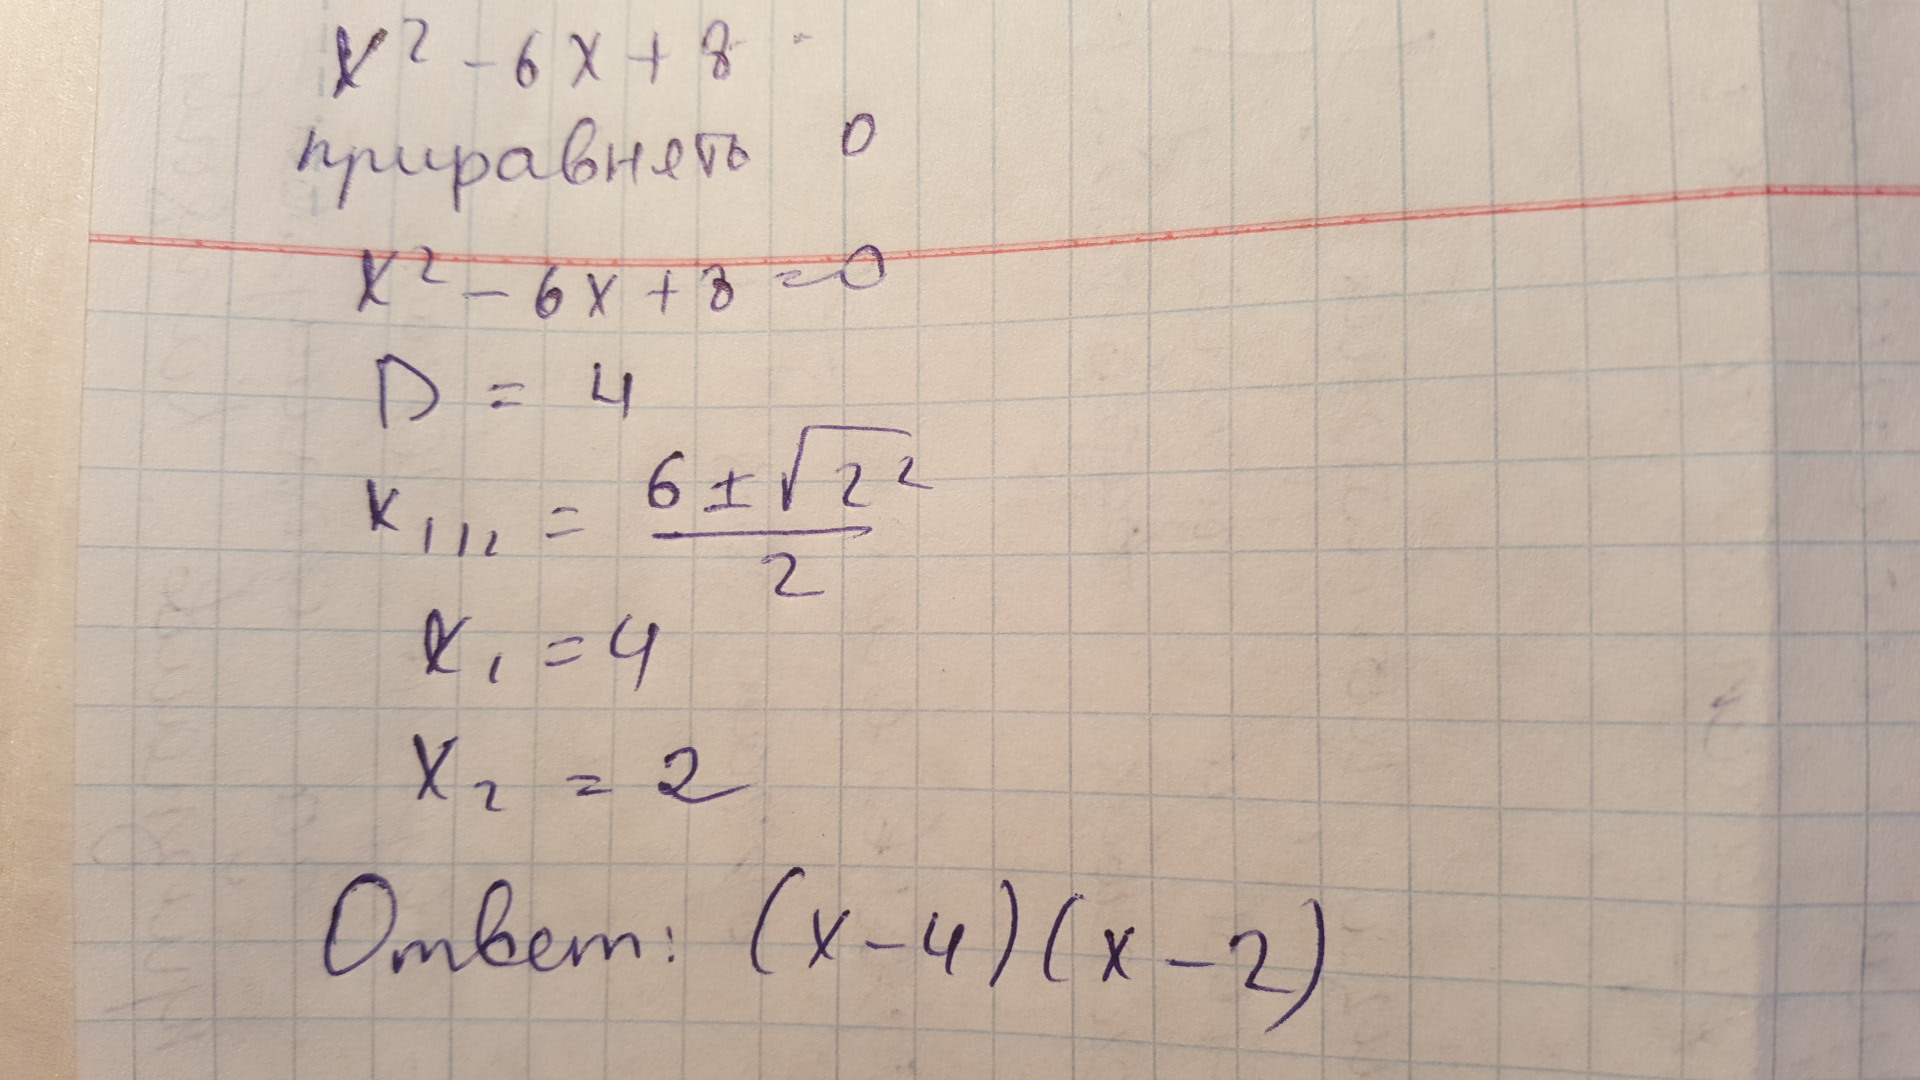 x² - 6x + 8
приравнять 0
x² - 6x + 8 = 0
D = 4
x₁,₂ = (6 ± √2²) / 2
x₁ = 4
x₂ = 2
Ответ: (x - 4)(x - 2)